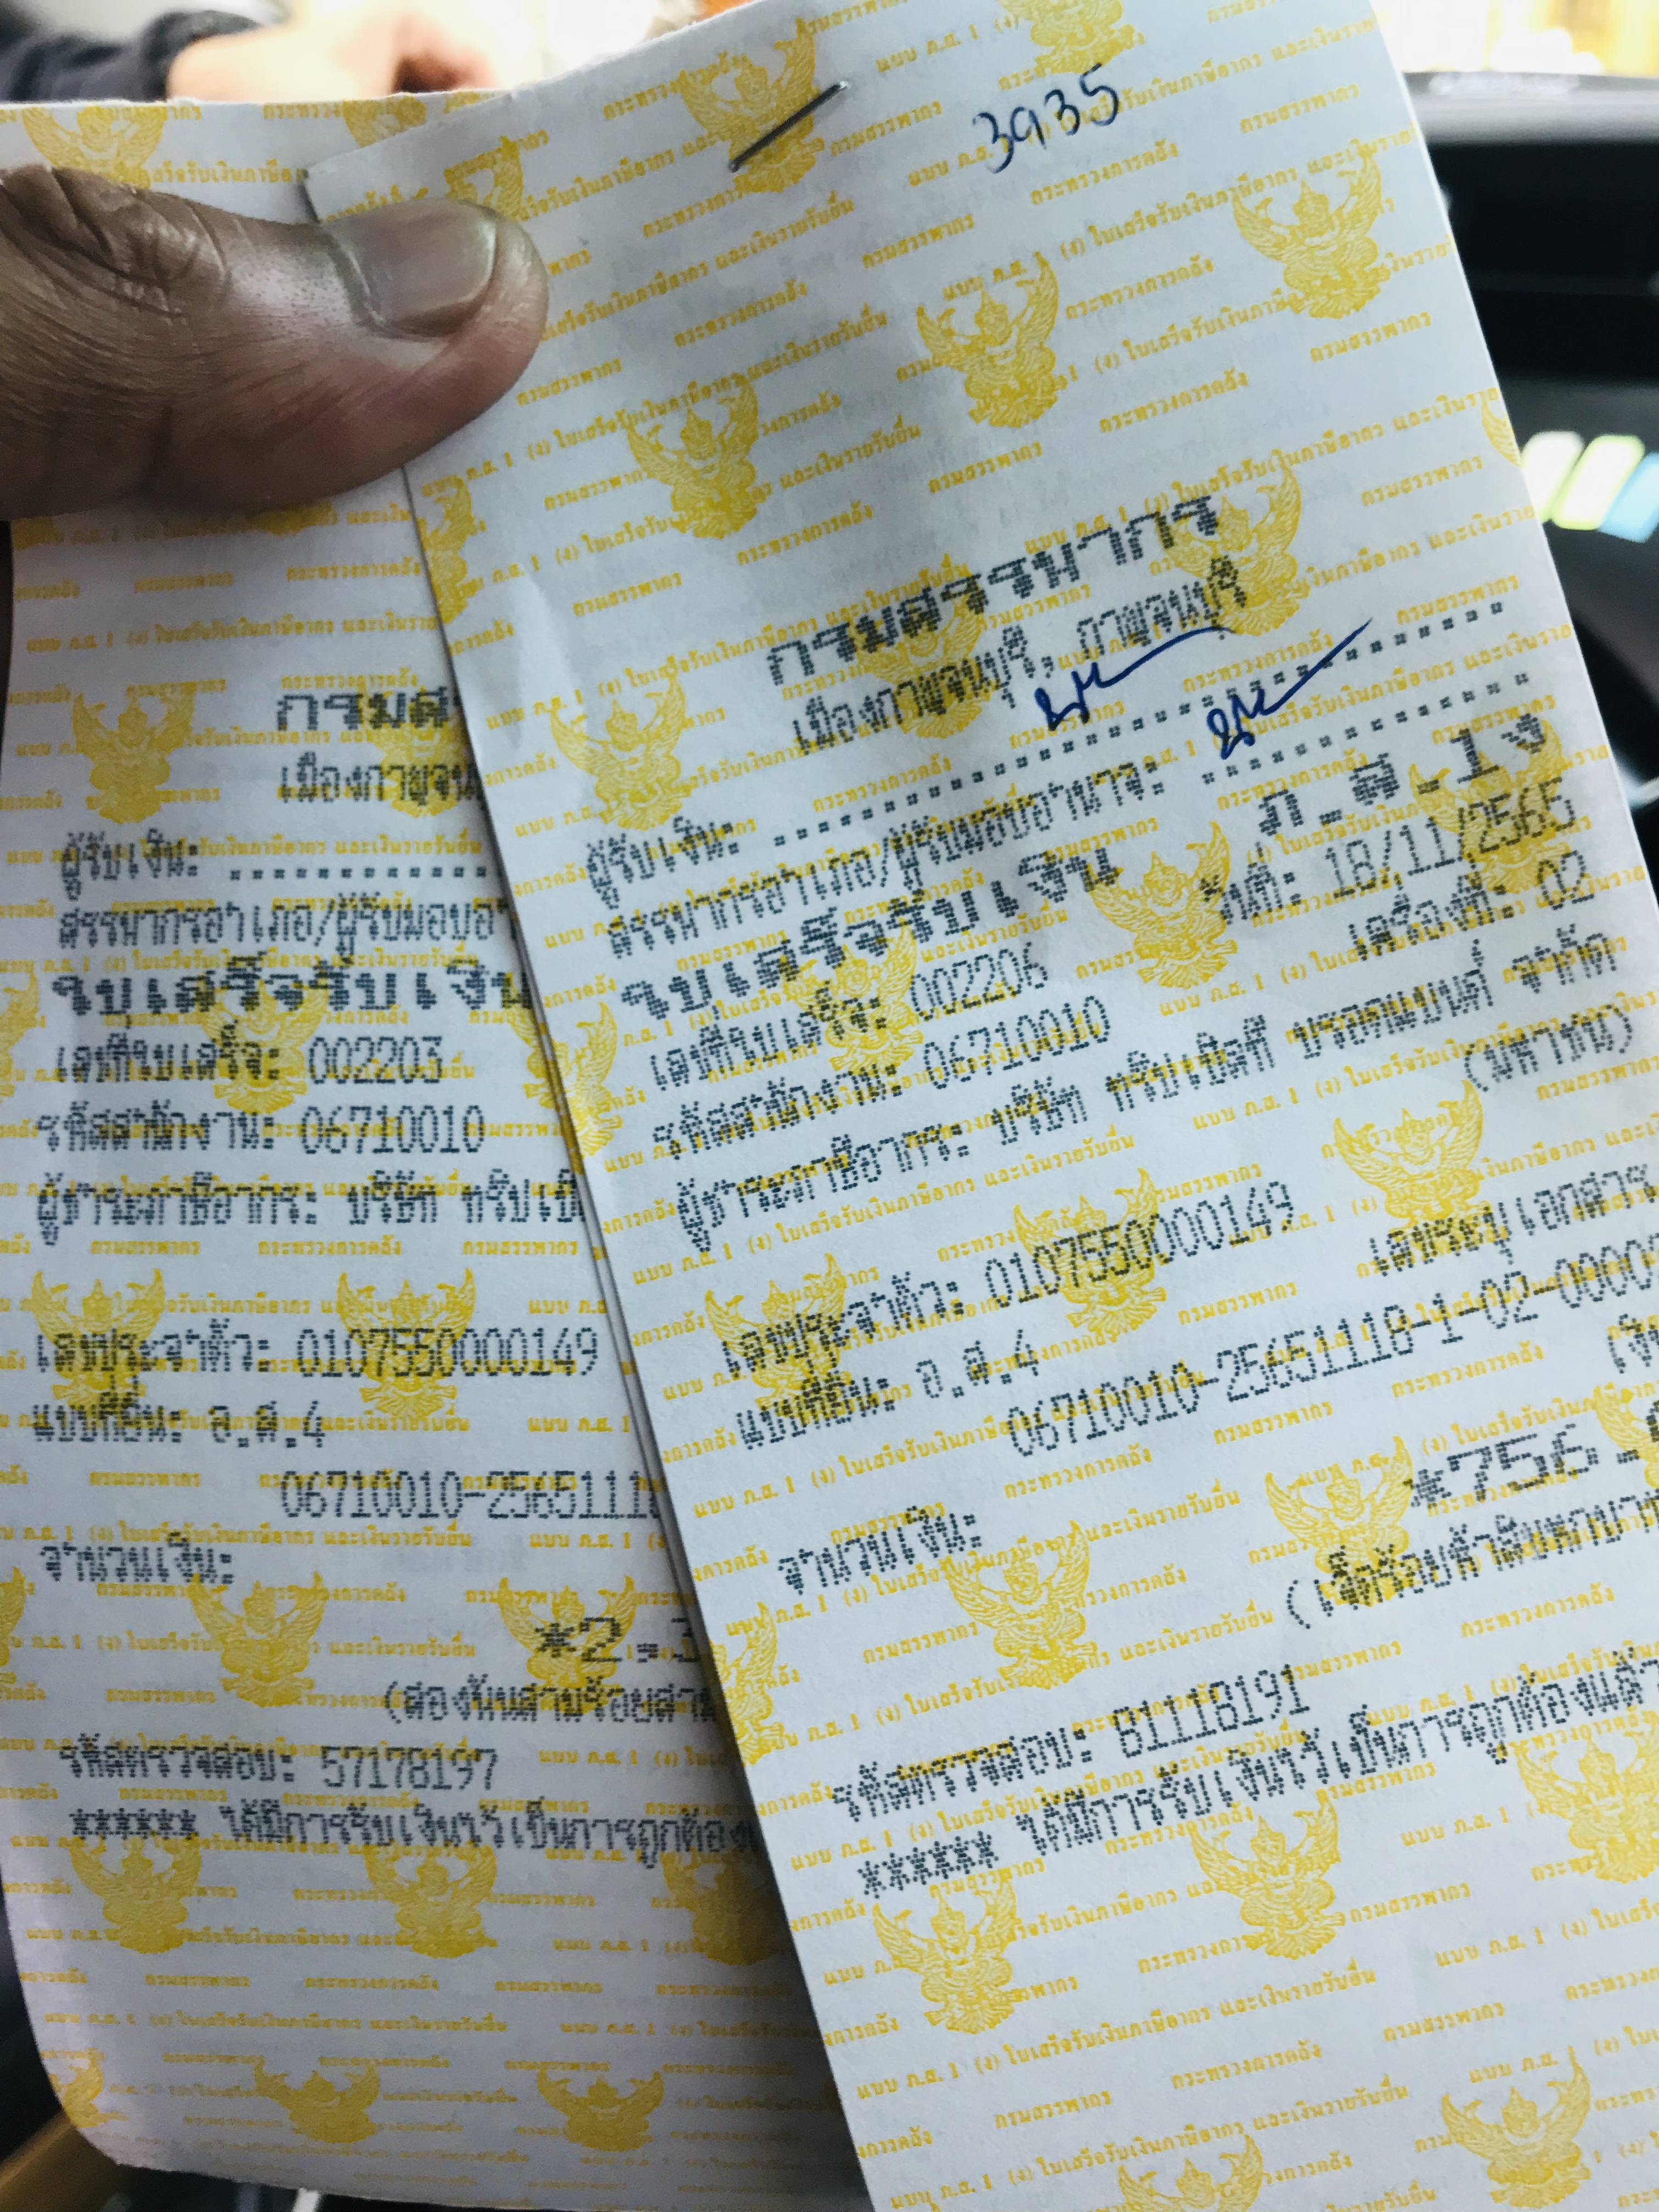 3935
กรมสรรพากร
เมืองกาญจนบุรี, กาญจนบุรี
ผู้รับเงิน: ........................
สรรพากรอำเภอ/ผู้รับมอบอำนาจ: ............
ใบเสร็จรับเงิน ภ.ส.1ง
เลขที่ใบเสร็จ: 002206 วันที่: 18/11/2565
รหัสสำนักงาน: 06710010 เครื่องที่: 02
ผู้ชำระภาษีอากร: บริษัท ทริปเปิลที บรอดแบนด์ จำกัด
(มหาชน)
เลขประจำตัว: 0107550000149
แบบที่ยื่น: อ.ส.4 เลขระบุเอกสาร
06710010-25651118-1-02-0000
จำนวนเงิน:
*756.
(เจ็ดร้อยห้าสิบหกบาท
รหัสตรวจสอบ: 81118191
***** ได้มีการรับเงินไว้เป็นการถูกต้องแล้ว
กรมส
เมืองกาญจน
ผู้รับเงิน: ............
สรรพากรอำเภอ/ผู้รับมอบอำ
ใบเสร็จรับเงิน
เลขที่ใบเสร็จ: 002203
รหัสสำนักงาน: 06710010
ผู้ชำระภาษีอากร: บริษัท ทริปเปิ
เลขประจำตัว: 0107550000149
แบบที่ยื่น: อ.ส.4
06710010-2565111
จำนวนเงิน:
*2,3
(สองพันสามร้อยสา
รหัสตรวจสอบ: 57178197
****** ได้มีการรับเงินไว้เป็นการถูกต้อง
แบบ ภ.ส. 1 (ง) ใบเสร็จรับเงินภาษีอากร และเงินรายรับอื่น
กรมสรรพากร กระทรวงการคลัง